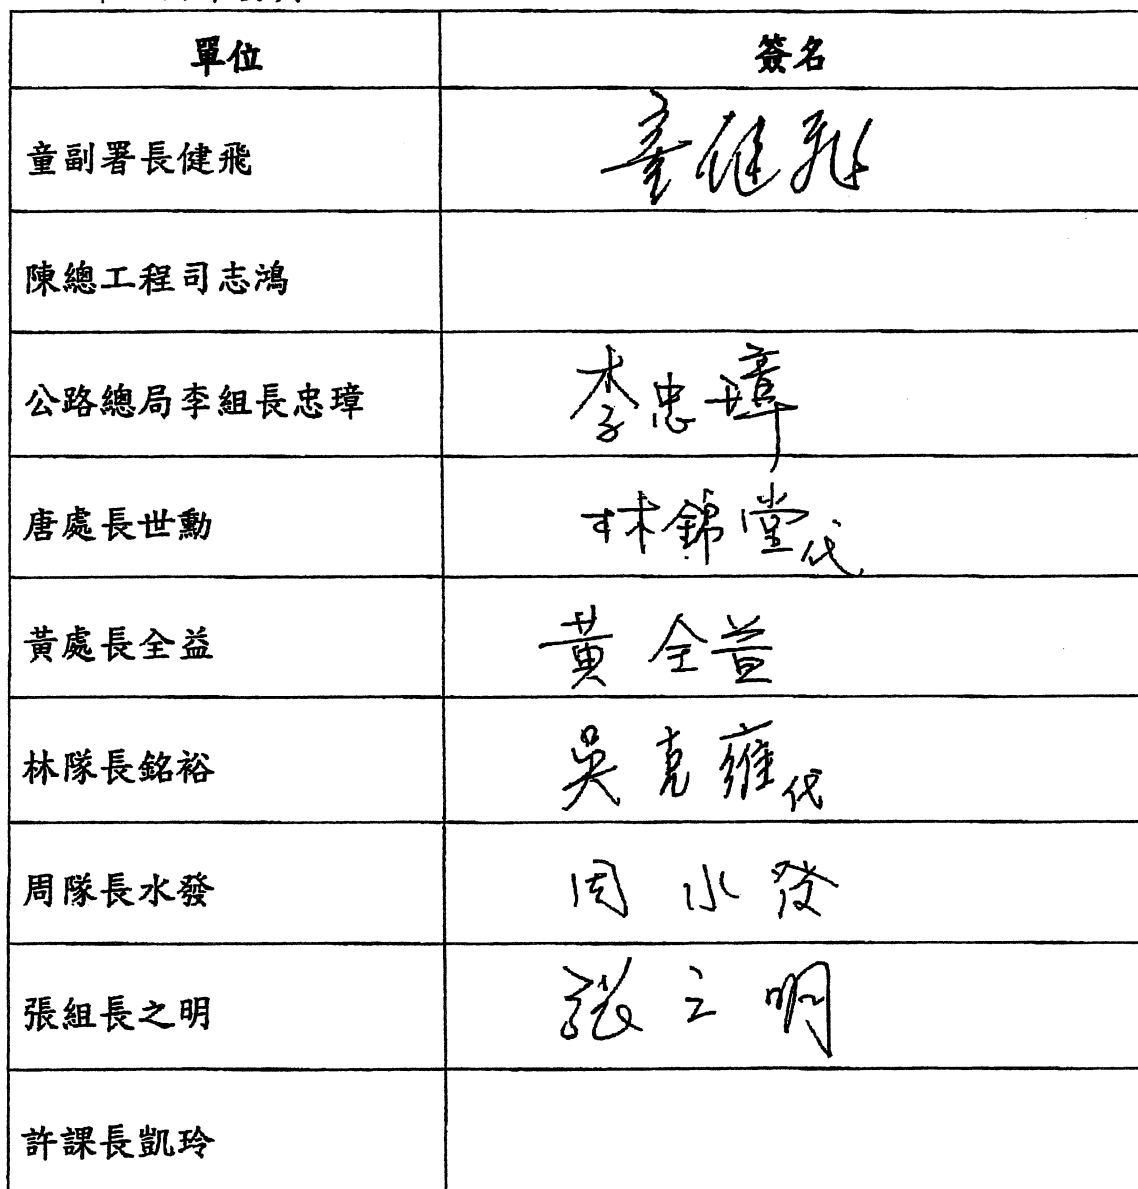 單位 簽名
童副署長健飛 童健飛
陳總工程司志鴻
公路總局李組長忠璋 李忠璋
唐處長世勳 林錦堂代
黃處長全益 黃全益
林隊長銘裕 吳克雍代
周隊長水發 周水發
張組長之明 張之明
許課長凱玲